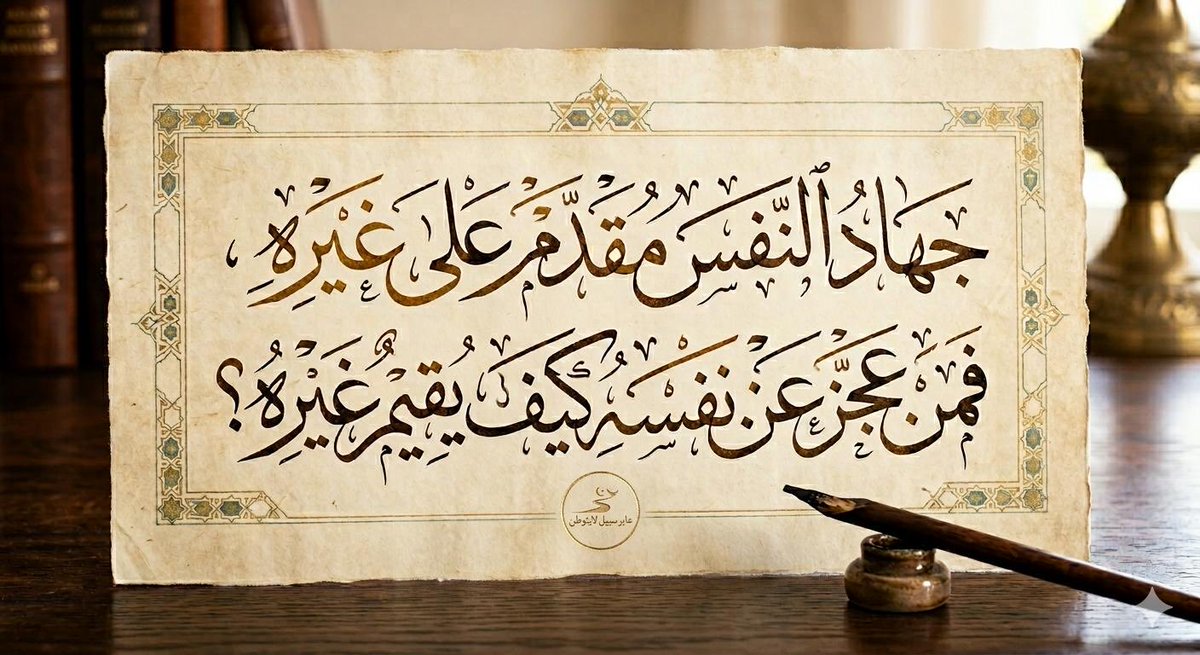 جَهَادُ ٱلنَّفسَ مُقَدَّمْ عَلىَ غَيْرِهِ،
فَمَنَ عَجَّزَ عَنْ نفْسَهِ كَيفَ يُقِيمُ غَيْرِهُ؟
عابر سبيل لايتوطن